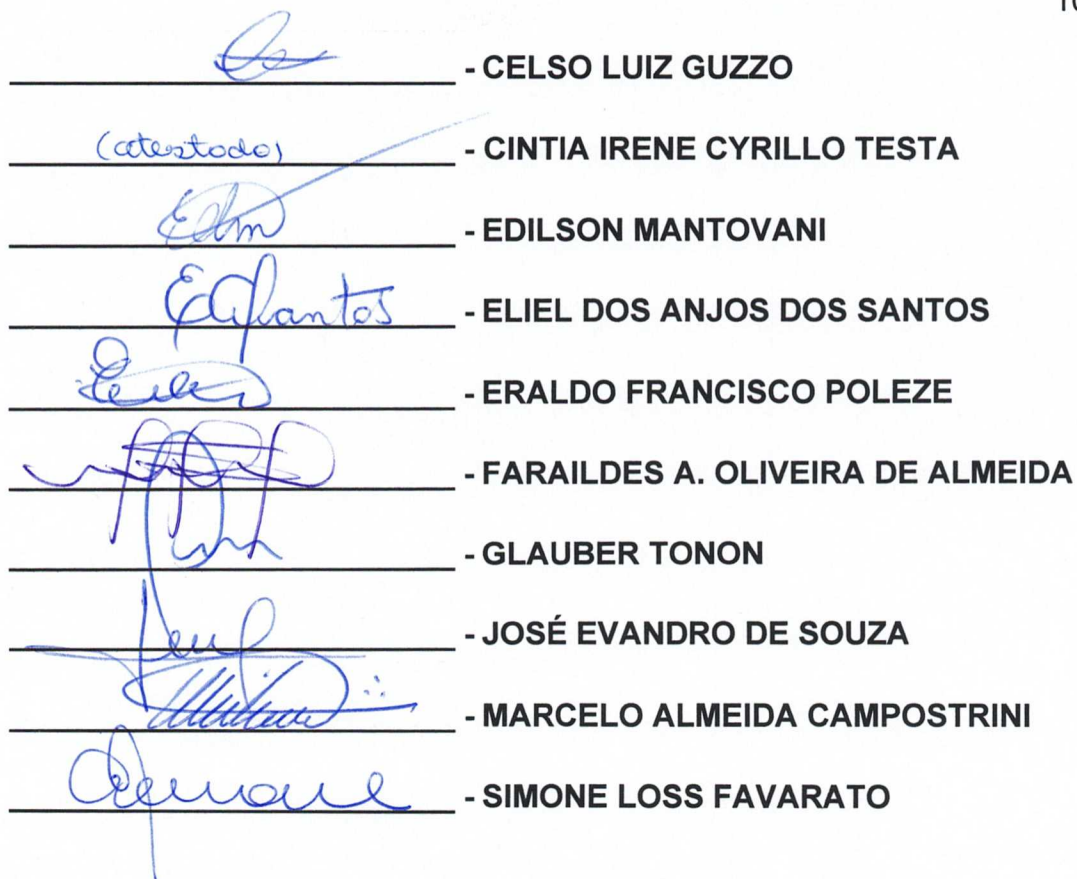 10
- CELSO LUIZ GUZZO
(atestado) - CINTIA IRENE CYRILLO TESTA
- EDILSON MANTOVANI
- ELIEL DOS ANJOS DOS SANTOS
- ERALDO FRANCISCO POLEZE
- FARAILDES A. OLIVEIRA DE ALMEIDA
- GLAUBER TONON
- JOSÉ EVANDRO DE SOUZA
- MARCELO ALMEIDA CAMPOSTRINI
Simone - SIMONE LOSS FAVARATO